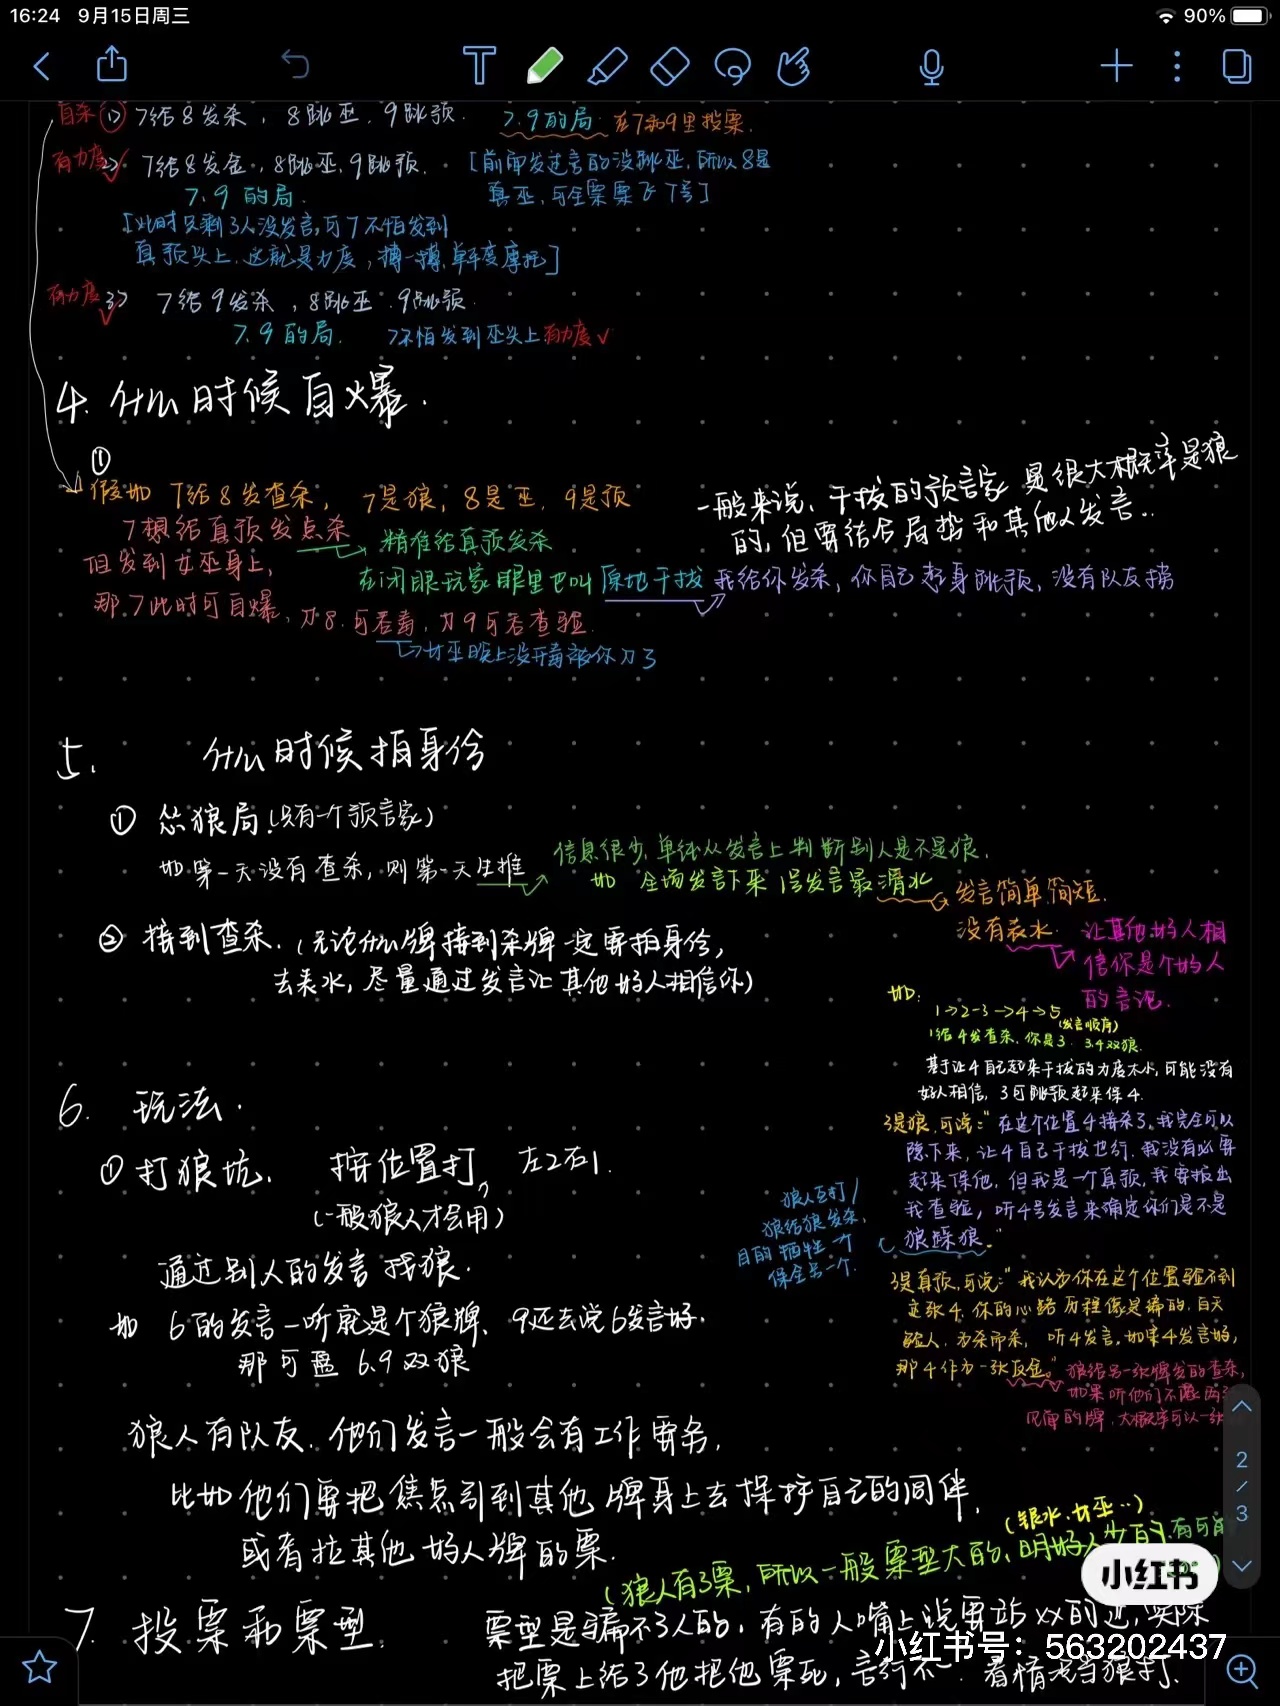 16:24 9月15日周三
90%
自杀 1> 7给8发杀，8跳巫，9跳预.
7.9的局. 在7和9里投票.
有力度 2> 7给8发金，8跳巫，9跳预.
[前面发过言的没跳巫，所以8是
真巫，可全票票飞7号]
7.9的局.
[此时只剩3人没发言，可7不怕发到
真预头上，这就是力度，搏一搏，单车变摩托]
有力度 3> 7给9发杀，8跳巫.9跳预.
7.9的局. 7不怕发到巫头上有力度✓
4. 什么时候自爆.
①
假如 7给8发查杀，7是狼，8是巫，9是预
7想给真预发点杀
精准给真预发杀
但发到女巫身上，
在闭眼玩家眼里也叫原地干拔 我给你发杀，你自己起身跳预，没有队友捞
那7此时可自爆，刀8.可吞毒，刀9可吞查验.
女巫晚上没开毒被你刀了
一般来说，干拔的预言家是很大概率是狼
的，但要结合局势和其他人发言..
5. 什么时候拍身份
① 怂狼局.(只有一个预言家)
如第一天没有查杀，则第一天生推
信息很少，单纯从发言上判断别人是不是狼.
如 全场发言下来 1号发言最滑水
发言简单，简短.
没有表水.
让其他好人相
信你是个好人
的言论.
② 接到查杀.(无论什么牌接到杀牌一定要拍身份，
去表水，尽量通过发言让其他好人相信你)
如:
1→2-3→4→5
(发言顺序)
1给4发查杀，你是3. 3.4双狼.
基于让4自己起来干拔的力度不小，可能没有
好人相信，3可跳预起来保4.
3是狼，可说:"在这个位置4接杀了，我完全可以
隐下来，让4自己干拔也行，我没有必要
起来保他，但我是一个真预，我要报出
我查验，听4号发言来确定你们是不是
狼踩狼."
狼人互打/
狼给狼发杀，
目的牺牲一个
保全另一个.
3是真预，可说:"我认为你在这个位置验不到
这张4，你的心路历程像是编的，白天
验人，为杀而杀，听4发言，如果4发言好，
那4作为一张反金."
狼给另一张牌发的查杀，
如果听他们不像两
见面的牌，大概率可以一张
6. 玩法.
① 打狼坑. 按位置打，左2右1.
(一般狼人才会用)
通过别人的发言 找狼.
如 6的发言一听就是个狼牌，9还去说6发言好.
那可盘 6.9双狼
狼人有队友，他们发言一般会有工作要务.
比如他们要把焦点引到其他牌身上去保护自己的同伴.
或者拉其他好人牌的票.
(银水.女巫..)
(狼人有3票，所以一般票型大的，明好人少的，有可
7. 投票和票型.
票型是骗不了人的，有的人嘴上说要站xx的边，实际
把票上给了他把他票死，言行不一. 看情况当狼打.
2
/
3
小红书
小红书号：563202437